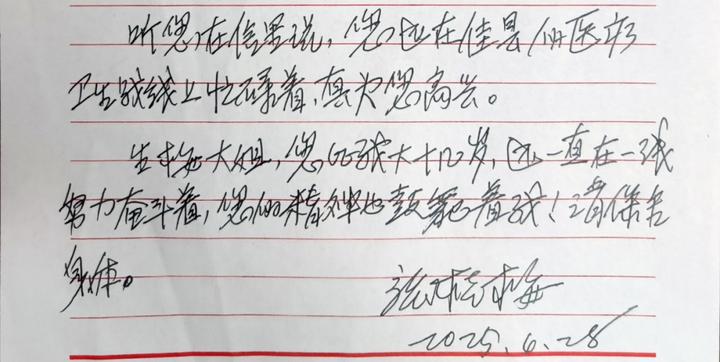 听您在信里说，您还在佳县的医疗
卫生战线上忙碌着，真为您高兴。
生梅大姐，您比我大十几岁，还一直在一线
努力奋斗着，您的精神也鼓舞着我！请保重
身体。
张桂梅
2025.6.28